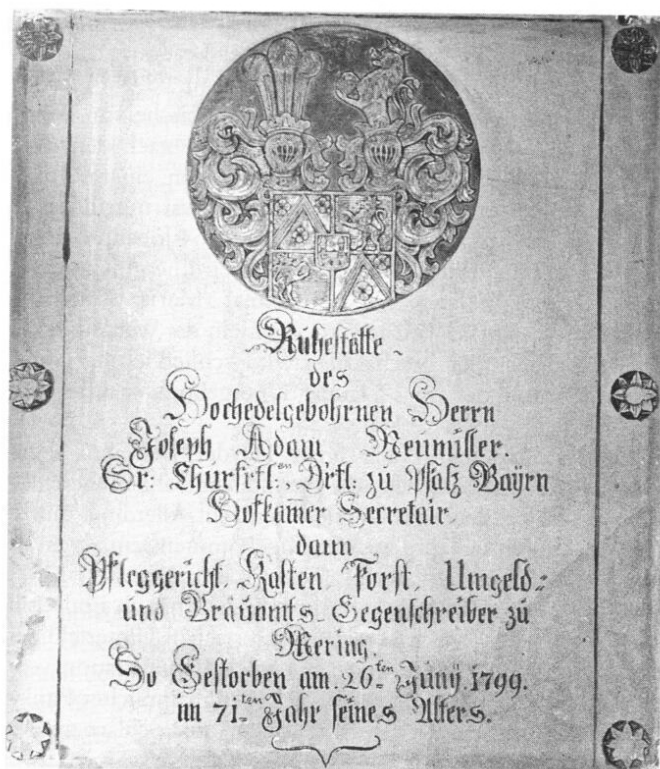 Ruhestätte
des
Hochedelgebohrnen Herrn
Joseph Adam Neumüller.
Sr: Churfrtl:en Drtl: zu Pfalz Bayrn
Hofkamer Secretair
dann
Pfleggericht, Kasten, Forst, Umgeld=
und Bräuamts-Gegenschreiber zu
Mering.
So Gestorben am 26ten Junÿ. 1799.
im 71ten Jahr seines Alters.